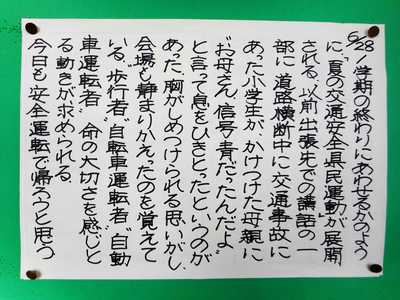 6/28 1学期の終わりにあわせるかのよう
に、“夏の交通安全県民運動”が展開
される。以前、出張先での講話の一
部に、道路横断中に交通事故に
あった小学生が、かけつけた母親に
“お母さん、信号、青だったんだよ”
と言って息をひきとったというのが
あった。胸がしめつけられる思いがし、
会場も静まりかえったのを覚えて
いる。“歩行者”“自転車運転者”“自動
車運転者” 命の大切さを感じと
る動きが求められる。
今日も安全運転で帰ろうと思う